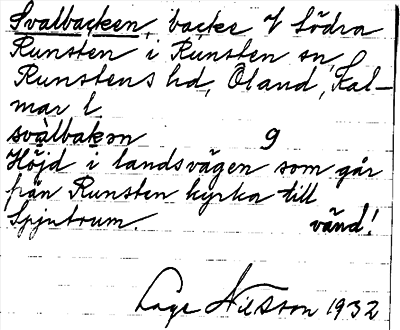 Svalbacken, backe i Södra
Runsten i Runsten sn,
Runstens hd, Öland, Kal-
mar l
svalbakon 9
Höjd i landsvägen som går
från Runsten kyrka till
Spjutrum. vänd!
Lage Nilsson 1932